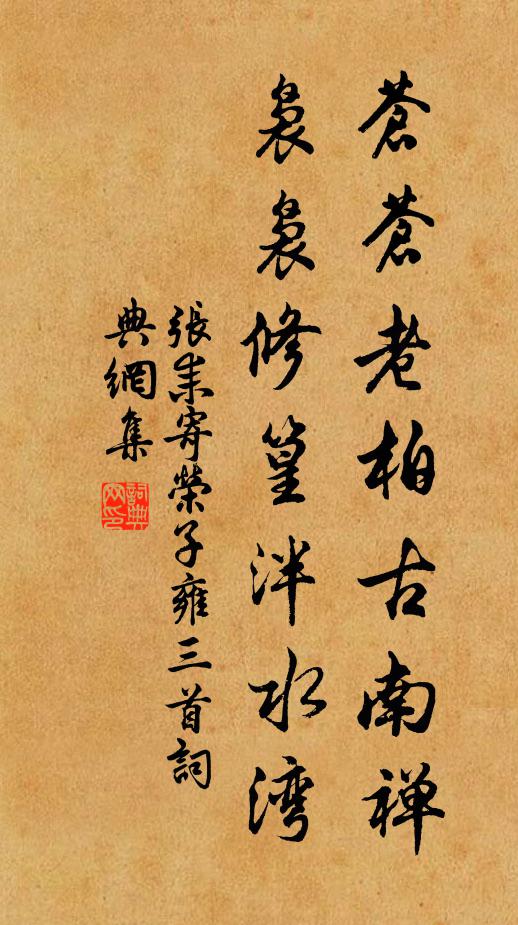 蒼蒼老柏古南禅
袅袅修篁泮水湾
張耒寄榮子雍三首詞
典網集
詞典网印